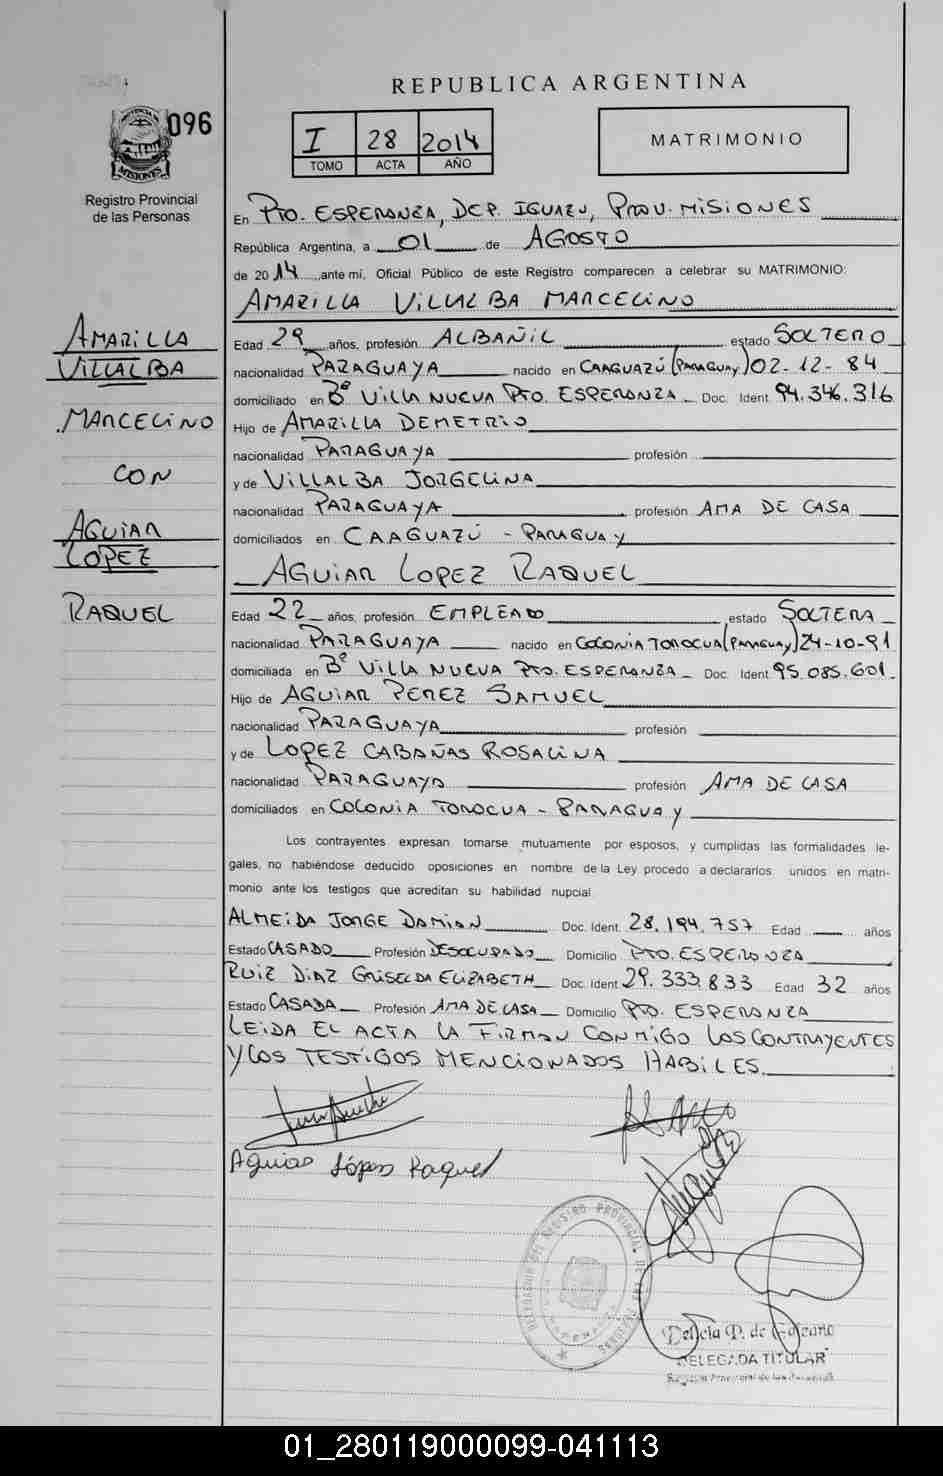 REPUBLICA ARGENTINA
096
I 28 2014
TOMO ACTA AÑO
MATRIMONIO
PROVINCIA DE
MISIONES
Registro Provincial
de las Personas
En PTO. ESPERANZA, DEP. IGUAZU, PROV. MISIONES
República Argentina, a 01 de AGOSTO
de 2014 ante mí, Oficial Público de este Registro comparecen a celebrar su MATRIMONIO:
AMARILLA VILLALBA MARCELINO
AMARILLA
VILLALBA
MARCELINO
CON
AGUIAR
LOPEZ
RAQUEL
Edad 29 años, profesión ALBAÑIL estado SOLTERO
nacionalidad PARAGUAYA nacido en CAAGUAZÚ (PARAGUAY) 02-12-84
domiciliado en Bº VILLA NUEVA PTO. ESPERANZA Doc. Ident. 94.346.316
Hijo de AMARILLA DEMETRIO
nacionalidad PARAGUAYA profesión
y de VILLALBA JORGELINA
nacionalidad PARAGUAYA profesión AMA DE CASA
domiciliados en CAAGUAZÚ - PARAGUAY
AGUIAR LOPEZ RAQUEL
Edad 22 años, profesión EMPLEADO estado SOLTERA
nacionalidad PARAGUAYA nacido en COLONIA TOROCUA (PARAGUAY) 24-10-91
domiciliada en Bº VILLA NUEVA PTO. ESPERANZA Doc. Ident 95.085.601
Hijo de AGUIAR PEREZ SAMUEL
nacionalidad PARAGUAYA profesión
y de LOPEZ CABAÑAS ROSALINA
nacionalidad PARAGUAYA profesión AMA DE CASA
domiciliados en COLONIA TOROCUA - PARAGUAY
Los contrayentes expresan tomarse mutuamente por esposos, y cumplidas las formalidades le-
gales, no habiéndose deducido oposiciones en nombre de la Ley procedo a declararlos unidos en matri-
monio ante los testigos que acreditan su habilidad nupcial.
ALMEIDA JORGE DAMIAN Doc. Ident. 28.194.757 Edad — años
Estado CASADO Profesión DESOCUPADO Domicilio PTO. ESPERANZA
RUIZ DIAZ GRISELDA ELIZABETH Doc. Ident 29.333.833 Edad 32 años
Estado CASADA Profesión AMA DE CASA Domicilio PTO. ESPERANZA
LEIDA EL ACTA LA FIRMAN CONMIGO LOS CONTRAYENTES
Y LOS TESTIGOS MENCIONADOS HABILES.
Aguiar López Raquel
DELEGACION DEL REGISTRO PROVINCIAL DE LAS PERSONAS
Delicia P. de Galeano
DELEGADA TITULAR
Registro Provincial de las Personas
01_280119000099-041113